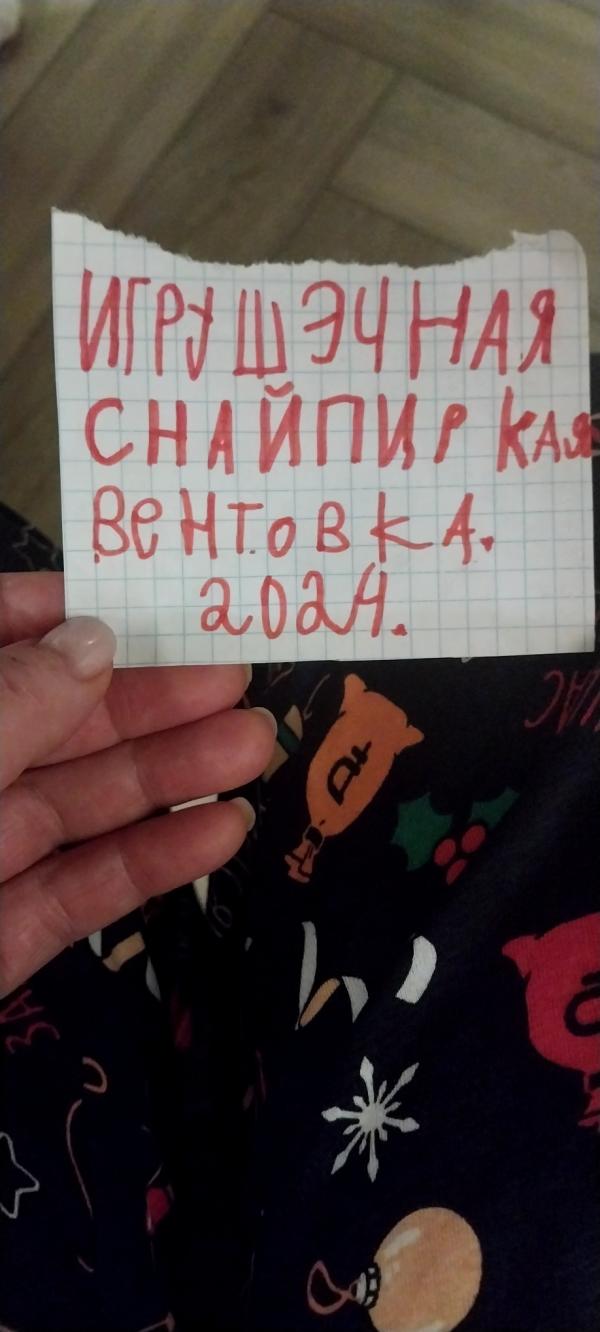 ИГРУШЭЧНАЯ
СНАЙПИРКАЯ
ВЕНТОВКА.
2024.